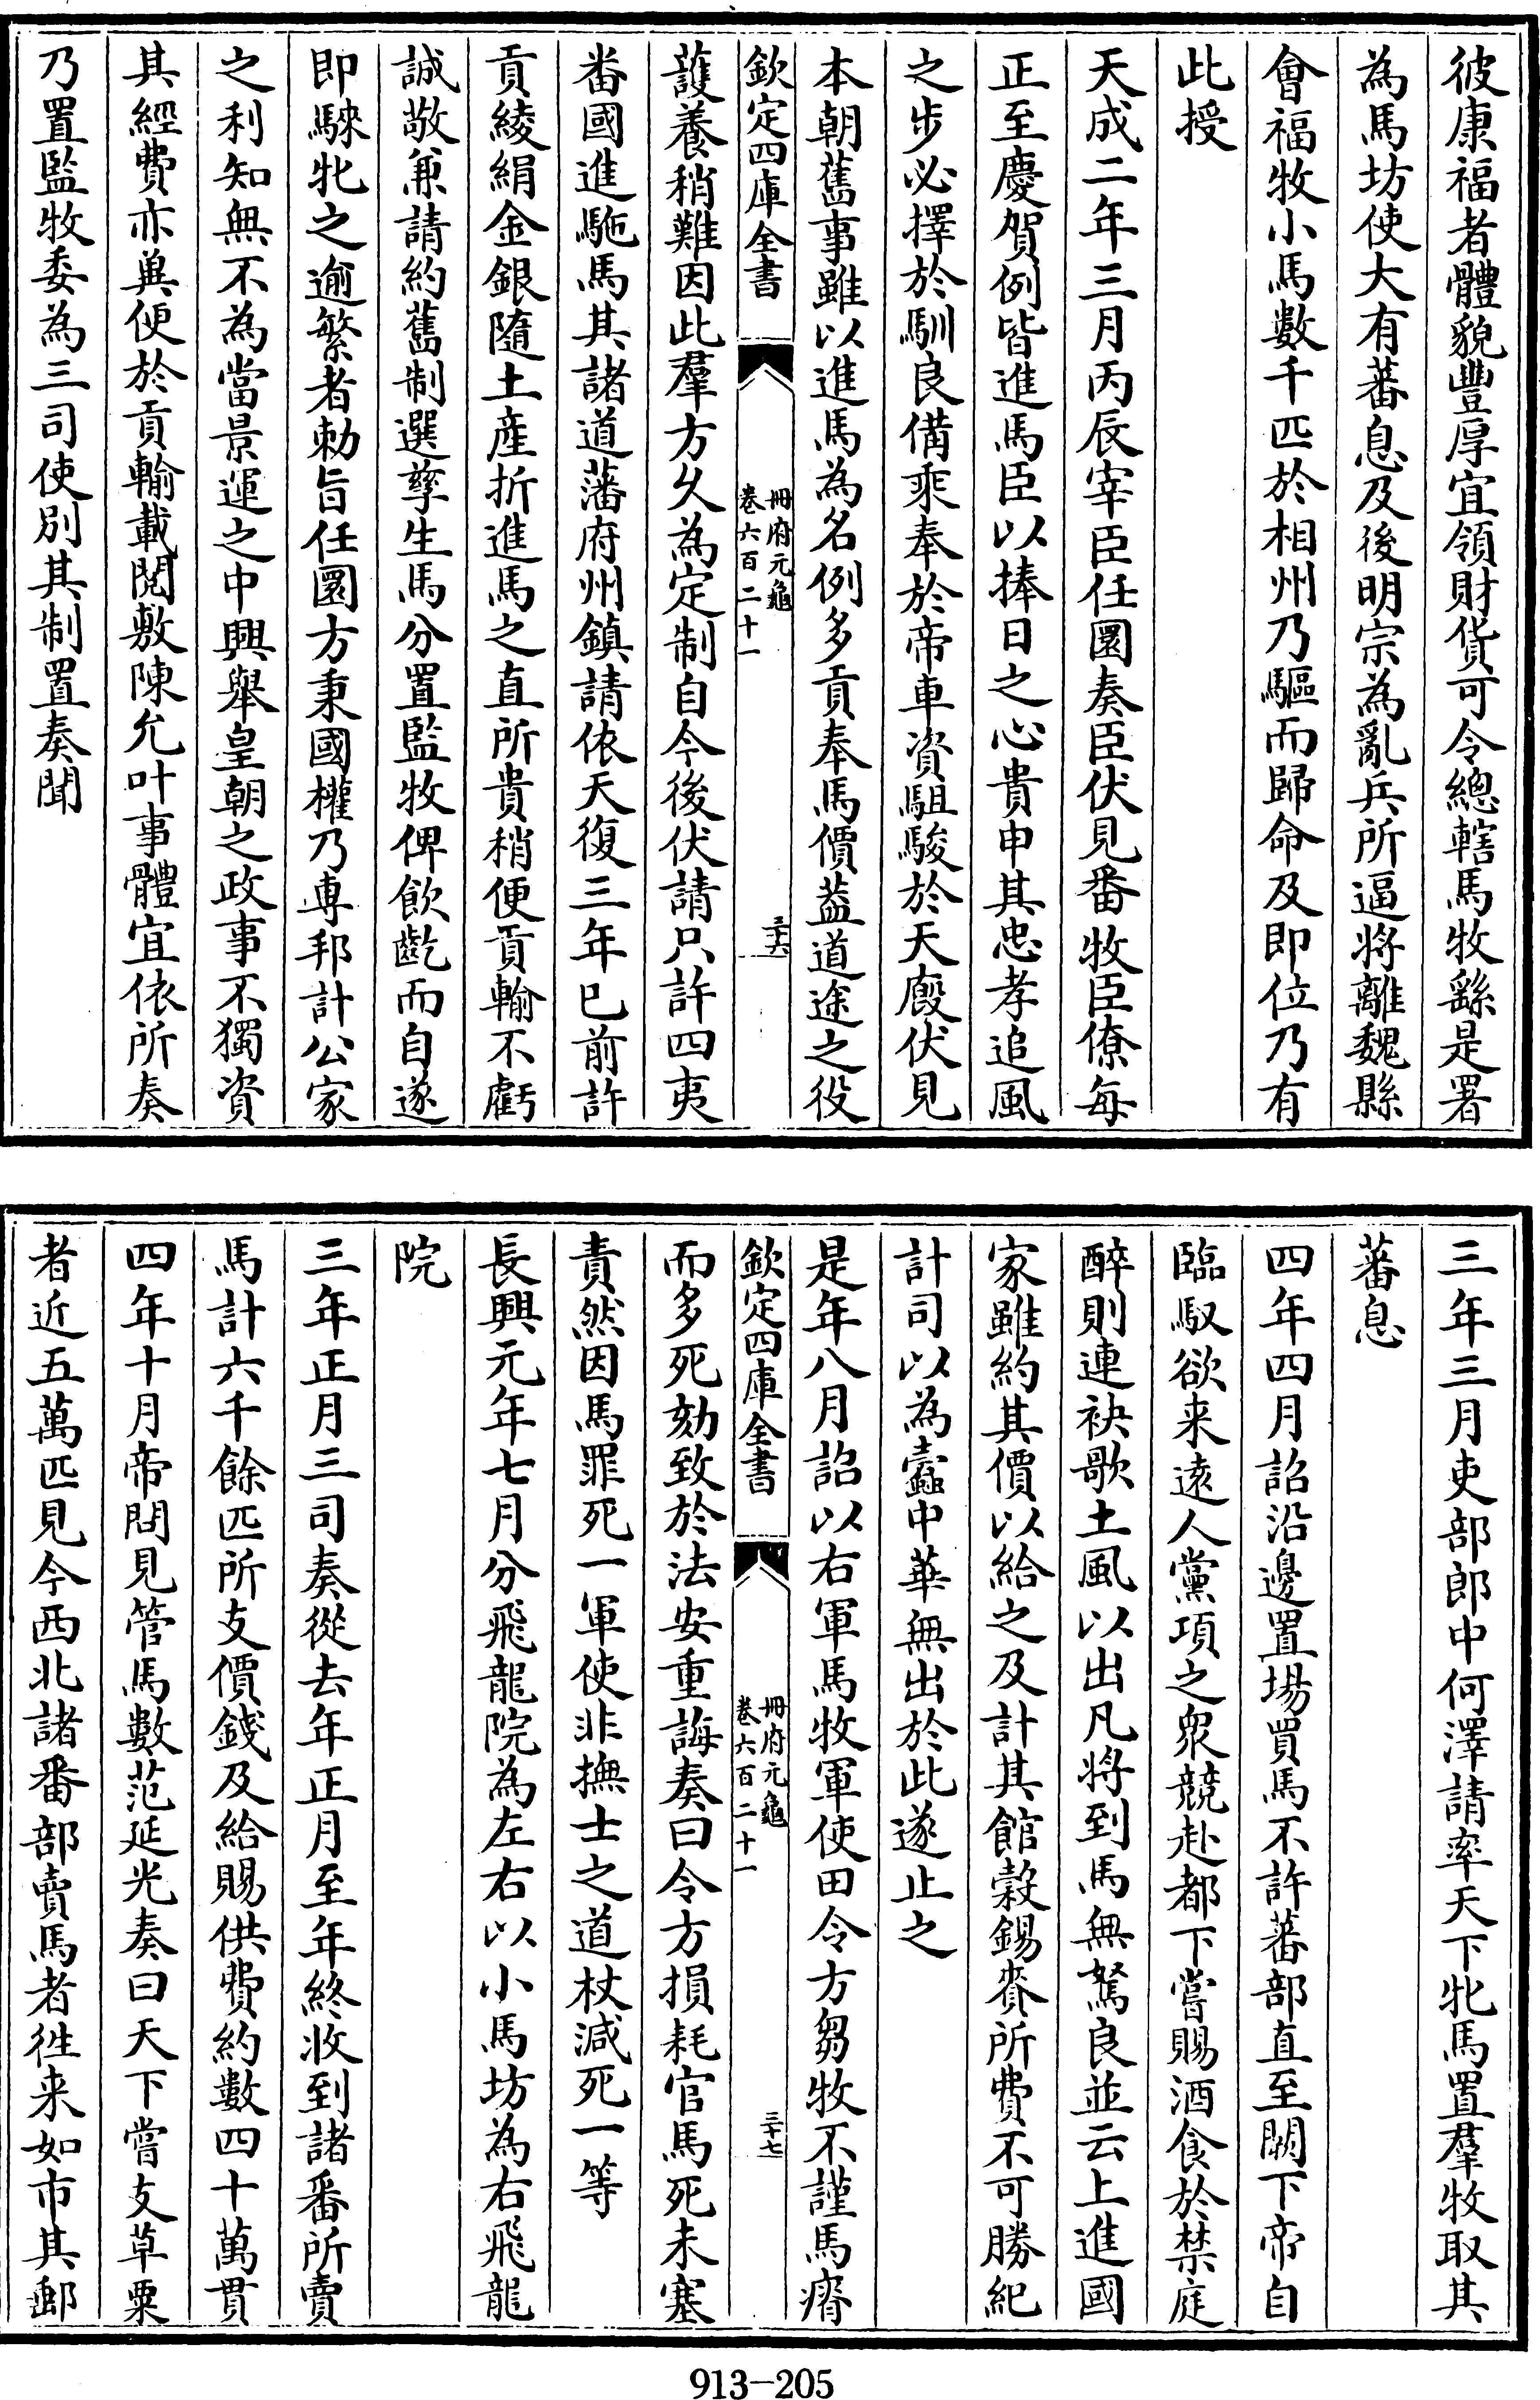 彼康福者體貌豐厚宜領財貨可令總轄馬牧繇是署
為馬坊使大有蕃息及後明宗為亂兵所逼将離魏縣
會福牧小馬數千匹於相州乃驅而歸命及即位乃有
此授
天成二年三月丙辰宰臣任圜奏臣伏見番牧臣僚每
正至慶賀例皆進馬臣以捧日之心貴申其忠孝追風
之步必擇於馴良備乘奉於帝車資駔駿於天廐伏見
本朝舊事雖以進馬為名例多貢奉馬價葢道途之役
欽定四庫全書
冊府元龜
卷六百二十一
三十六
護養稍難因此羣方久為定制自今後伏請只許四夷
番國進駞馬其諸道藩府州鎮請依天復三年已前許
貢綾絹金銀隨土産折進馬之直所貴稍便貢輸不虧
誠敬兼請約舊制選孳生馬分置監牧俾飲齕而自遂
即騋牝之逾繁者勅旨任圜方秉國權乃專邦計公家
之利知無不為當景運之中興舉皇朝之政事不獨資
其經費亦兼便於貢輸載閱敷陳允叶事體宜依所奏
乃置監牧委為三司使别其制置奏聞
三年三月吏部郎中何澤請率天下牝馬置羣牧取其
蕃息
四年四月詔沿邊置場買馬不許蕃部直至闕下帝自
臨馭欲来逺人黨項之衆競赴都下嘗賜酒食於禁庭
醉則連袂歌土風以出凡将到馬無駑良並云上進國
家雖約其價以給之及計其館穀錫賚所費不可勝紀
計司以為蠹中華無出於此遂止之
是年八月詔以右軍馬牧軍使田令方芻牧不謹馬瘠
欽定四庫全書
冊府元龜
卷六百二十一
三十七
而多死劾致於法安重誨奏曰令方損耗官馬死未塞
責然因馬罪死一軍使非撫士之道杖減死一等
長興元年七月分飛龍院為左右以小馬坊為右飛龍
院
三年正月三司奏從去年正月至年終收到諸番所賣
馬計六千餘匹所支價錢及給賜供費約數四十萬貫
四年十月帝問見管馬數范延光奏曰天下嘗支草粟
者近五萬匹見今西北諸番部賣馬者徃来如市其郵
913-205